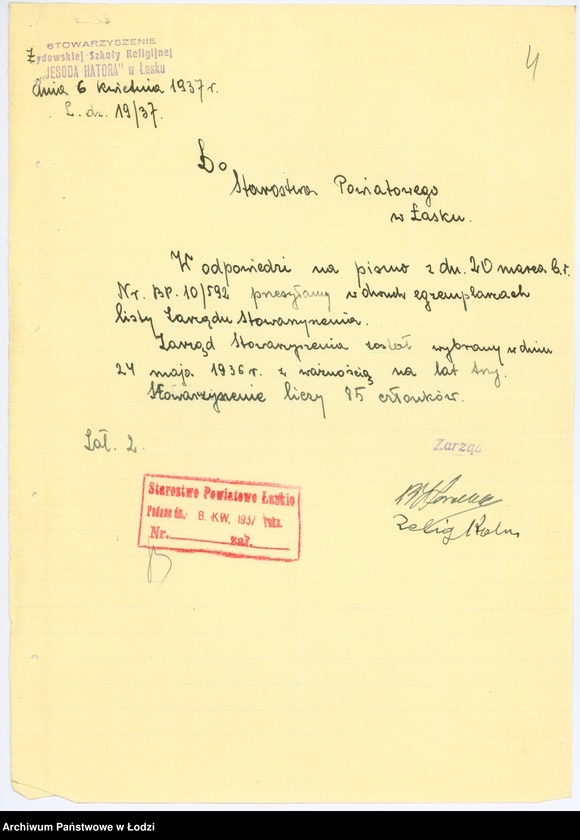 STOWARZYSZENIE
Żydowskiej Szkoły Religijnej
"JESODA HATORA" w Łasku
dnia 6 kwietnia 1937 r.
L. dz. 19/37.
4
Do
Starostwa Powiatowego
w Łasku.
W odpowiedzi na pismo z dn. 20 marca b.r.
Nr. BP. 10/592 przesyłamy w dwuch egzemplarzach
listy Zarządu Stowarzyszenia.
Zarząd Stowarzyszenia został wybrany w dniu
24 maja 1936 r. z ważnością na lat trzy.
Stowarzyszenie liczy 85 członków.
Zał. 2.
Zarząd
Zelig
Starostwo Powiatowe Łaskie
Podano dn. 8. KW. 1937 roku.
Nr. zał.
Archiwum Państwowe w Łodzi